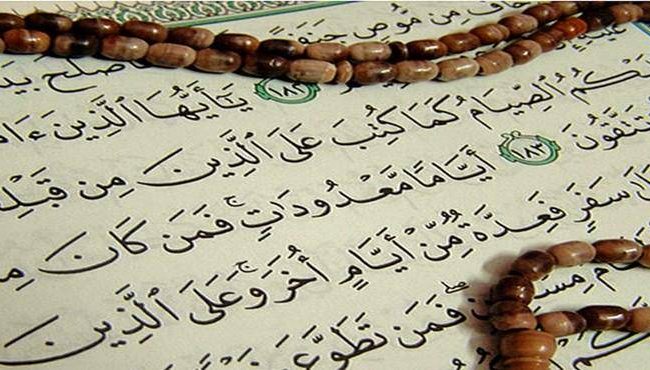 خَافَ مِن مُّوصٍ جَنَفً
فَأَصْلَحَ بَيْنَ
١٨٢ يَٰٓأَيُّهَا ٱلَّذِينَ ءَامَ
يْكُمُ ٱلصِّيَامُ كَمَا كُتِبَ عَلَى ٱلَّذِينَ مِن قَبْلِ
تَتَّقُونَ ١٨٣ أَيَّامًا مَّعْدُودَٰتٍۚ فَمَن كَانَ مِ
سَفَرٍ فَعِدَّةٌ مِّنْ أَيَّامٍ أُخَرَۚ وَعَلَى ٱلَّذِينَ
فَمَن تَطَوَّعَ خَيْرًا